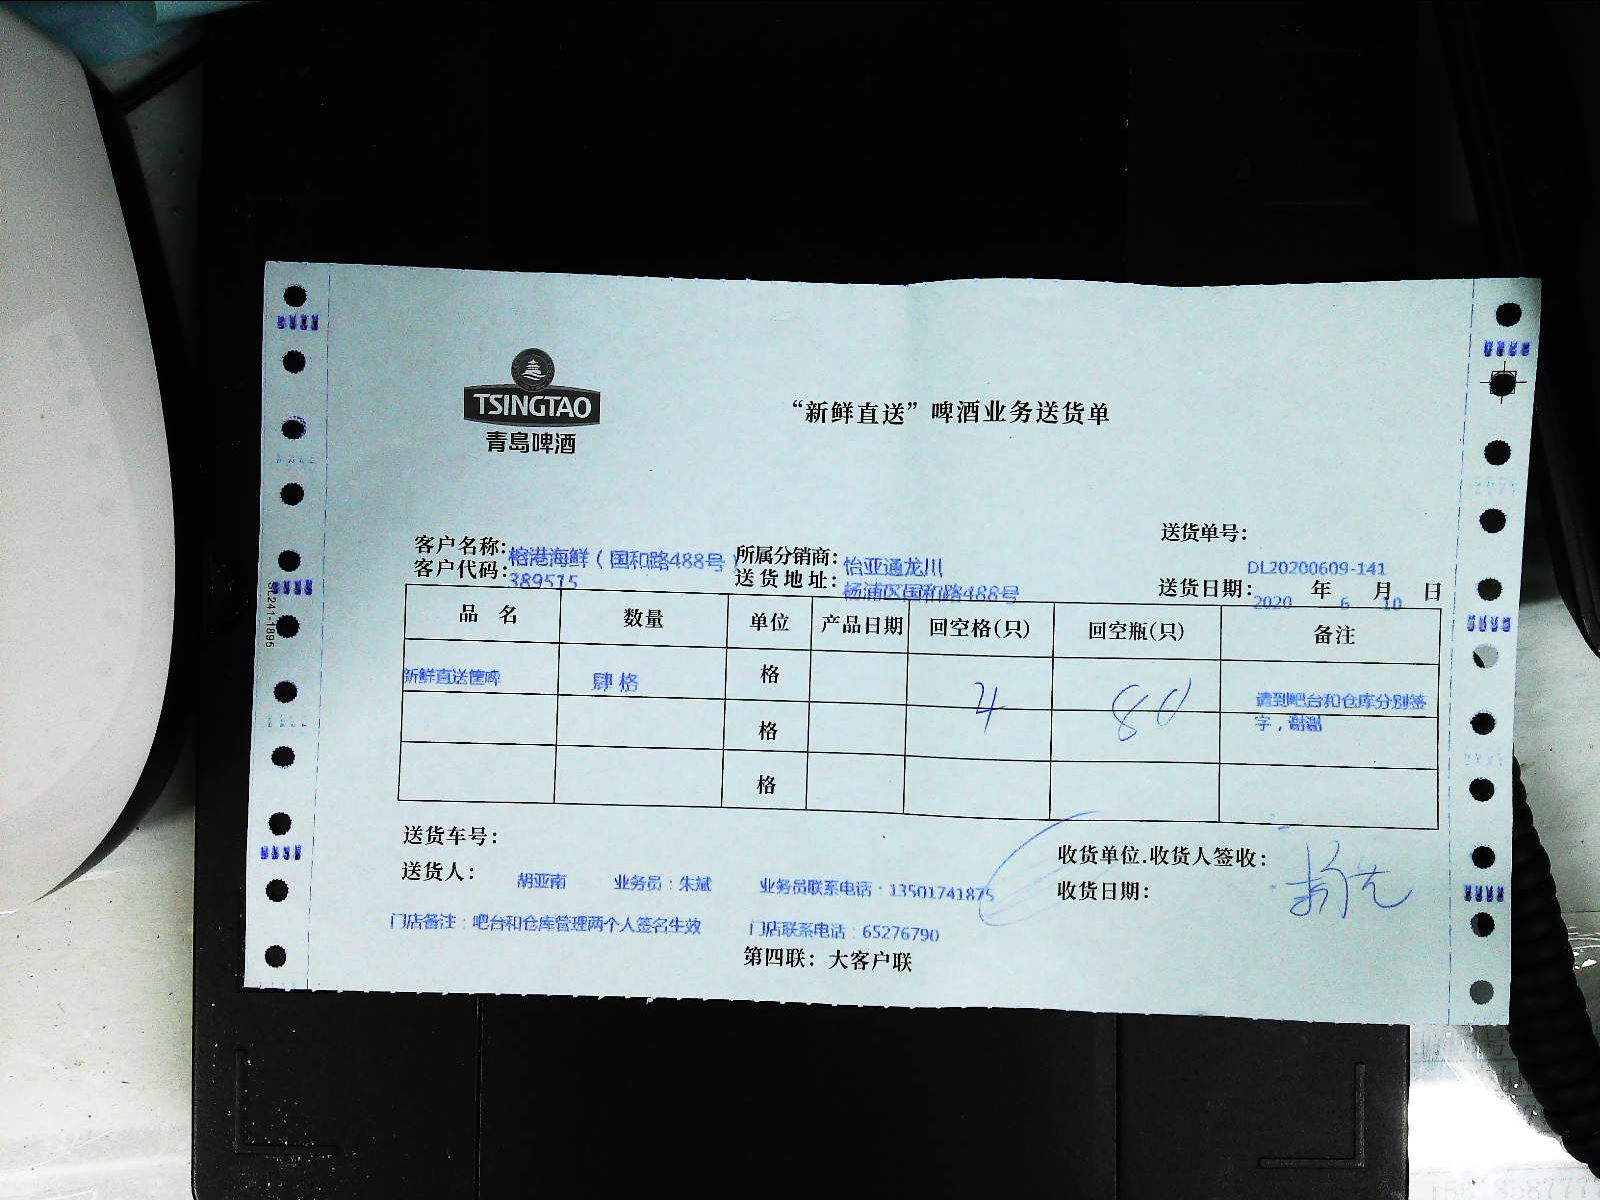 TSINGTAO
青岛啤酒
“新鲜直送”啤酒业务送货单
送货单号：
DL20200609-141
客户名称：榕港海鲜（国和路488号）
所属分销商：怡亚通龙川
客户代码：389515
送货地址：杨浦区国和路488号
送货日期：2020 年 6 月 10 日
品 名 数量 单位 产品日期 回空格(只) 回空瓶(只) 备注
新鲜直送筐啤 肆格 格 4 80 请到吧台和仓库分别签
字，谢谢
格
格
送货车号：
收货单位.收货人签收：
送货人： 胡亚南 业务员：朱斌 业务员联系电话：13501741875
收货日期：
门店备注：吧台和仓库管理两个人签名生效 门店联系电话：65276790
第四联：大客户联
SL241-1895